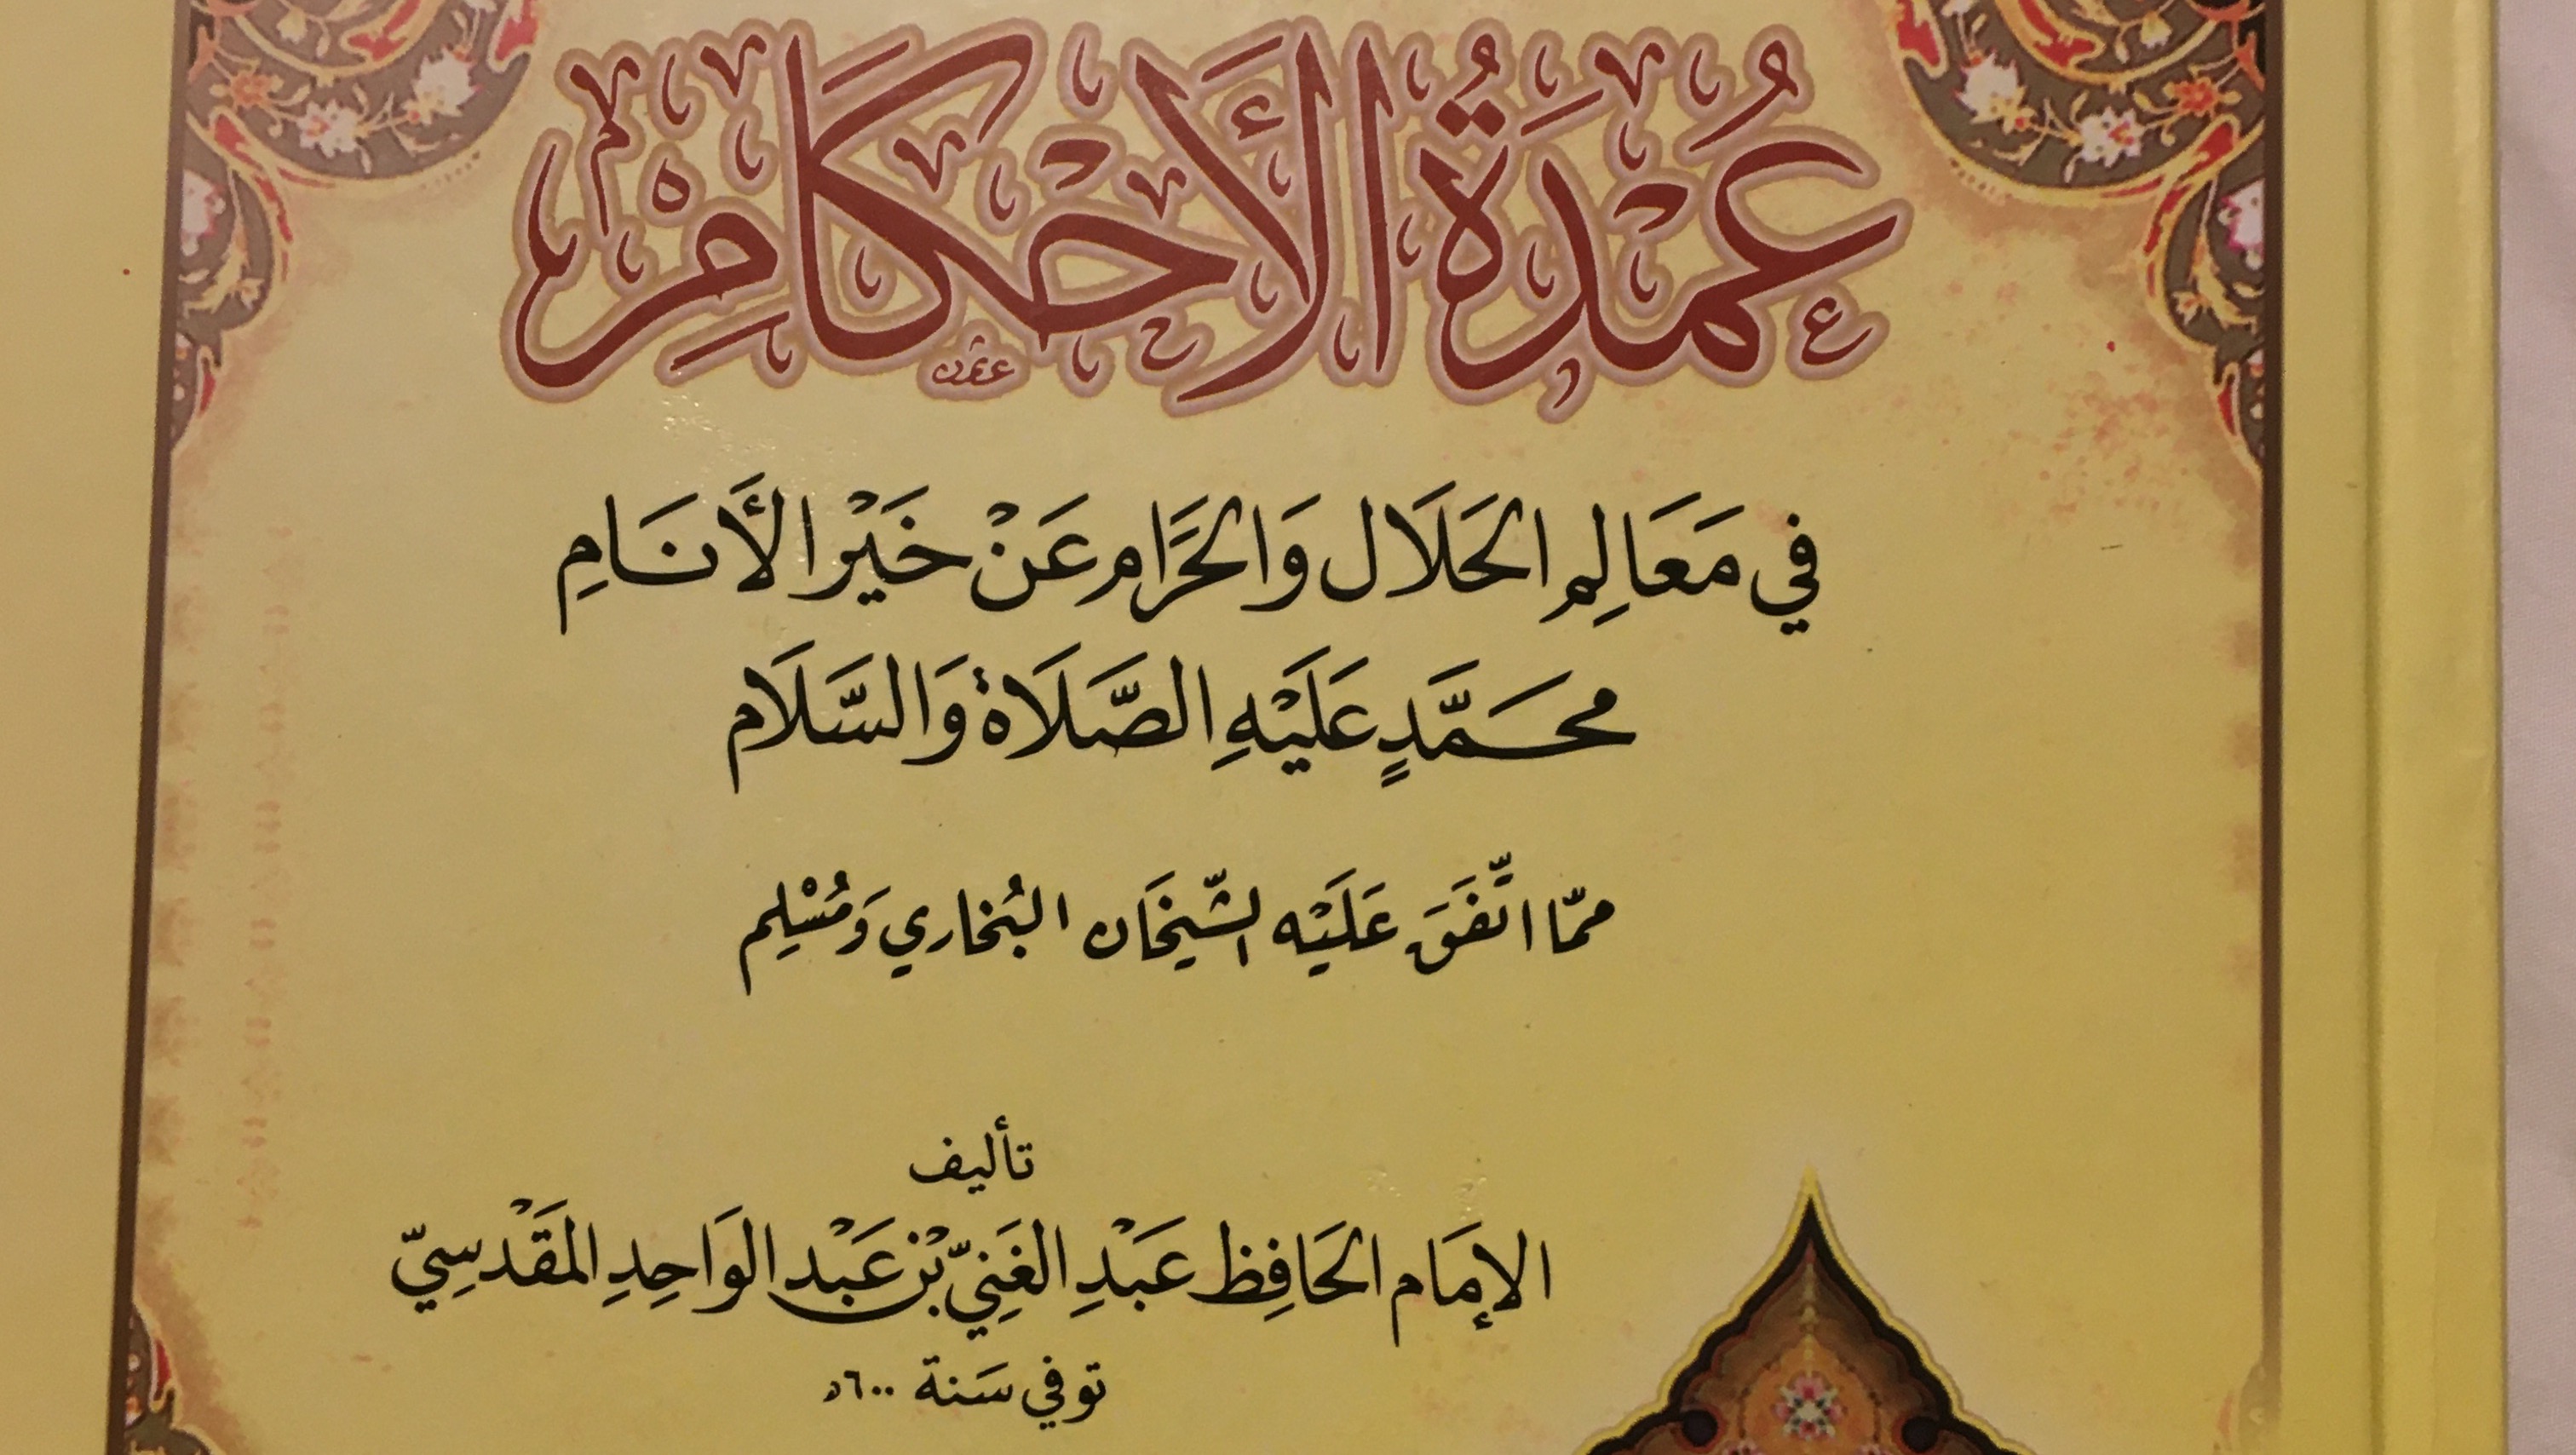 عُمْدَةُ الأَحْكَامِ
في مَعَالِمِ الحَلَالِ وَالحَرَامِ عَنْ خَيْرِ الأَنَامِ
محَمَّدٍ عَلَيْهِ الصَّلَاةُ وَالسَّلَام
ممّا اتَّفَقَ عَلَيْه الشّيخَان البُخاري وَمُسْلِم
تأليف
الإمَام الحَافِظ عَبْدِ الغَنِيّ بْن عَبْد الوَاحِدِ المَقْدسِيّ
توفي سَنة ٦٠٠هـ